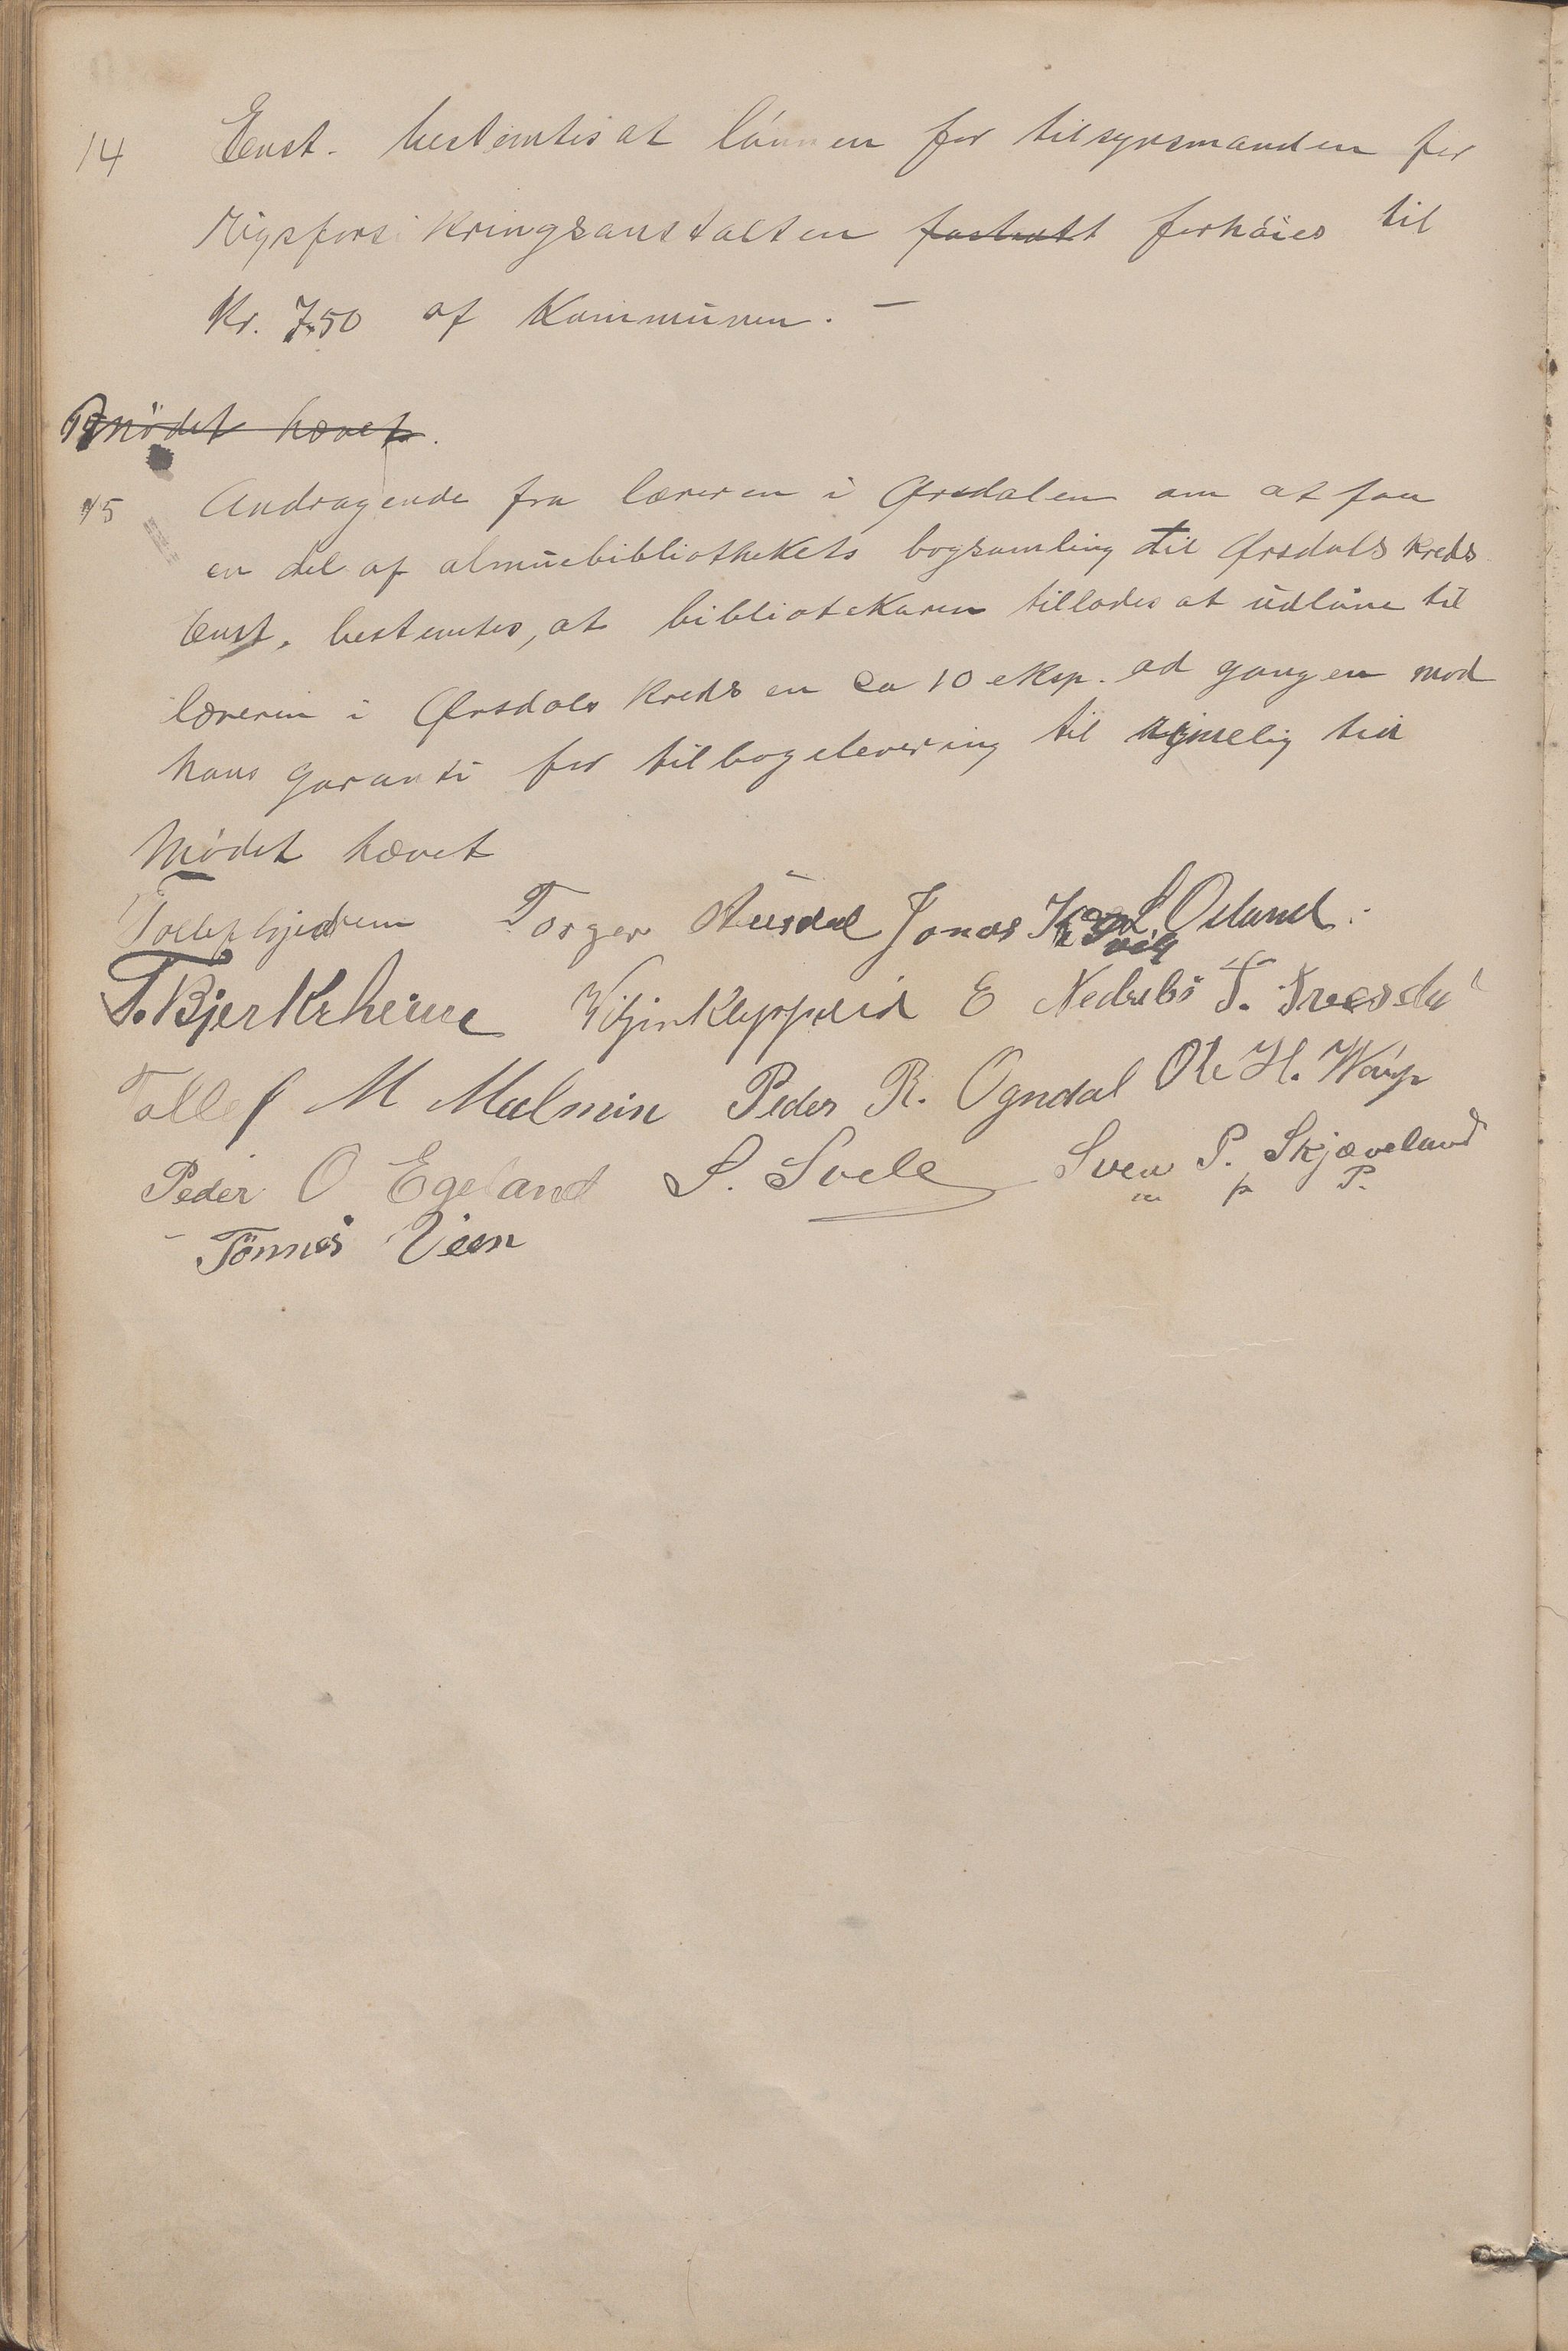 14 Enst. bestemtes at lønnen for tilsynsmanden for
Rigsforsikringsanstalten fastsatt forhøies til
Kr. 7.50 af Kommunen. –
Mødet hævet.
15 Andragende fra læreren i Ørsdalen om at faa
en del af almuebibliothekets bogsamling til Ørsdals kreds
Enst. bestemtes, at bibliotekaren tillades at udlåne til
læreren i Ørsdals Kreds en ca 10 eksp. ad gangen mod
hans garanti for tilbagelevering til rimelig tid
Mødet hævet
Torger Jonas L Osland.
T. Bjerkrheim E Nedrebø T.
Tollef M Malmin Peder R. Ogndal Ole H.
Peder O Egeland S. Svele Sven P. Skjæveland
m p P.
Tønnes Veen